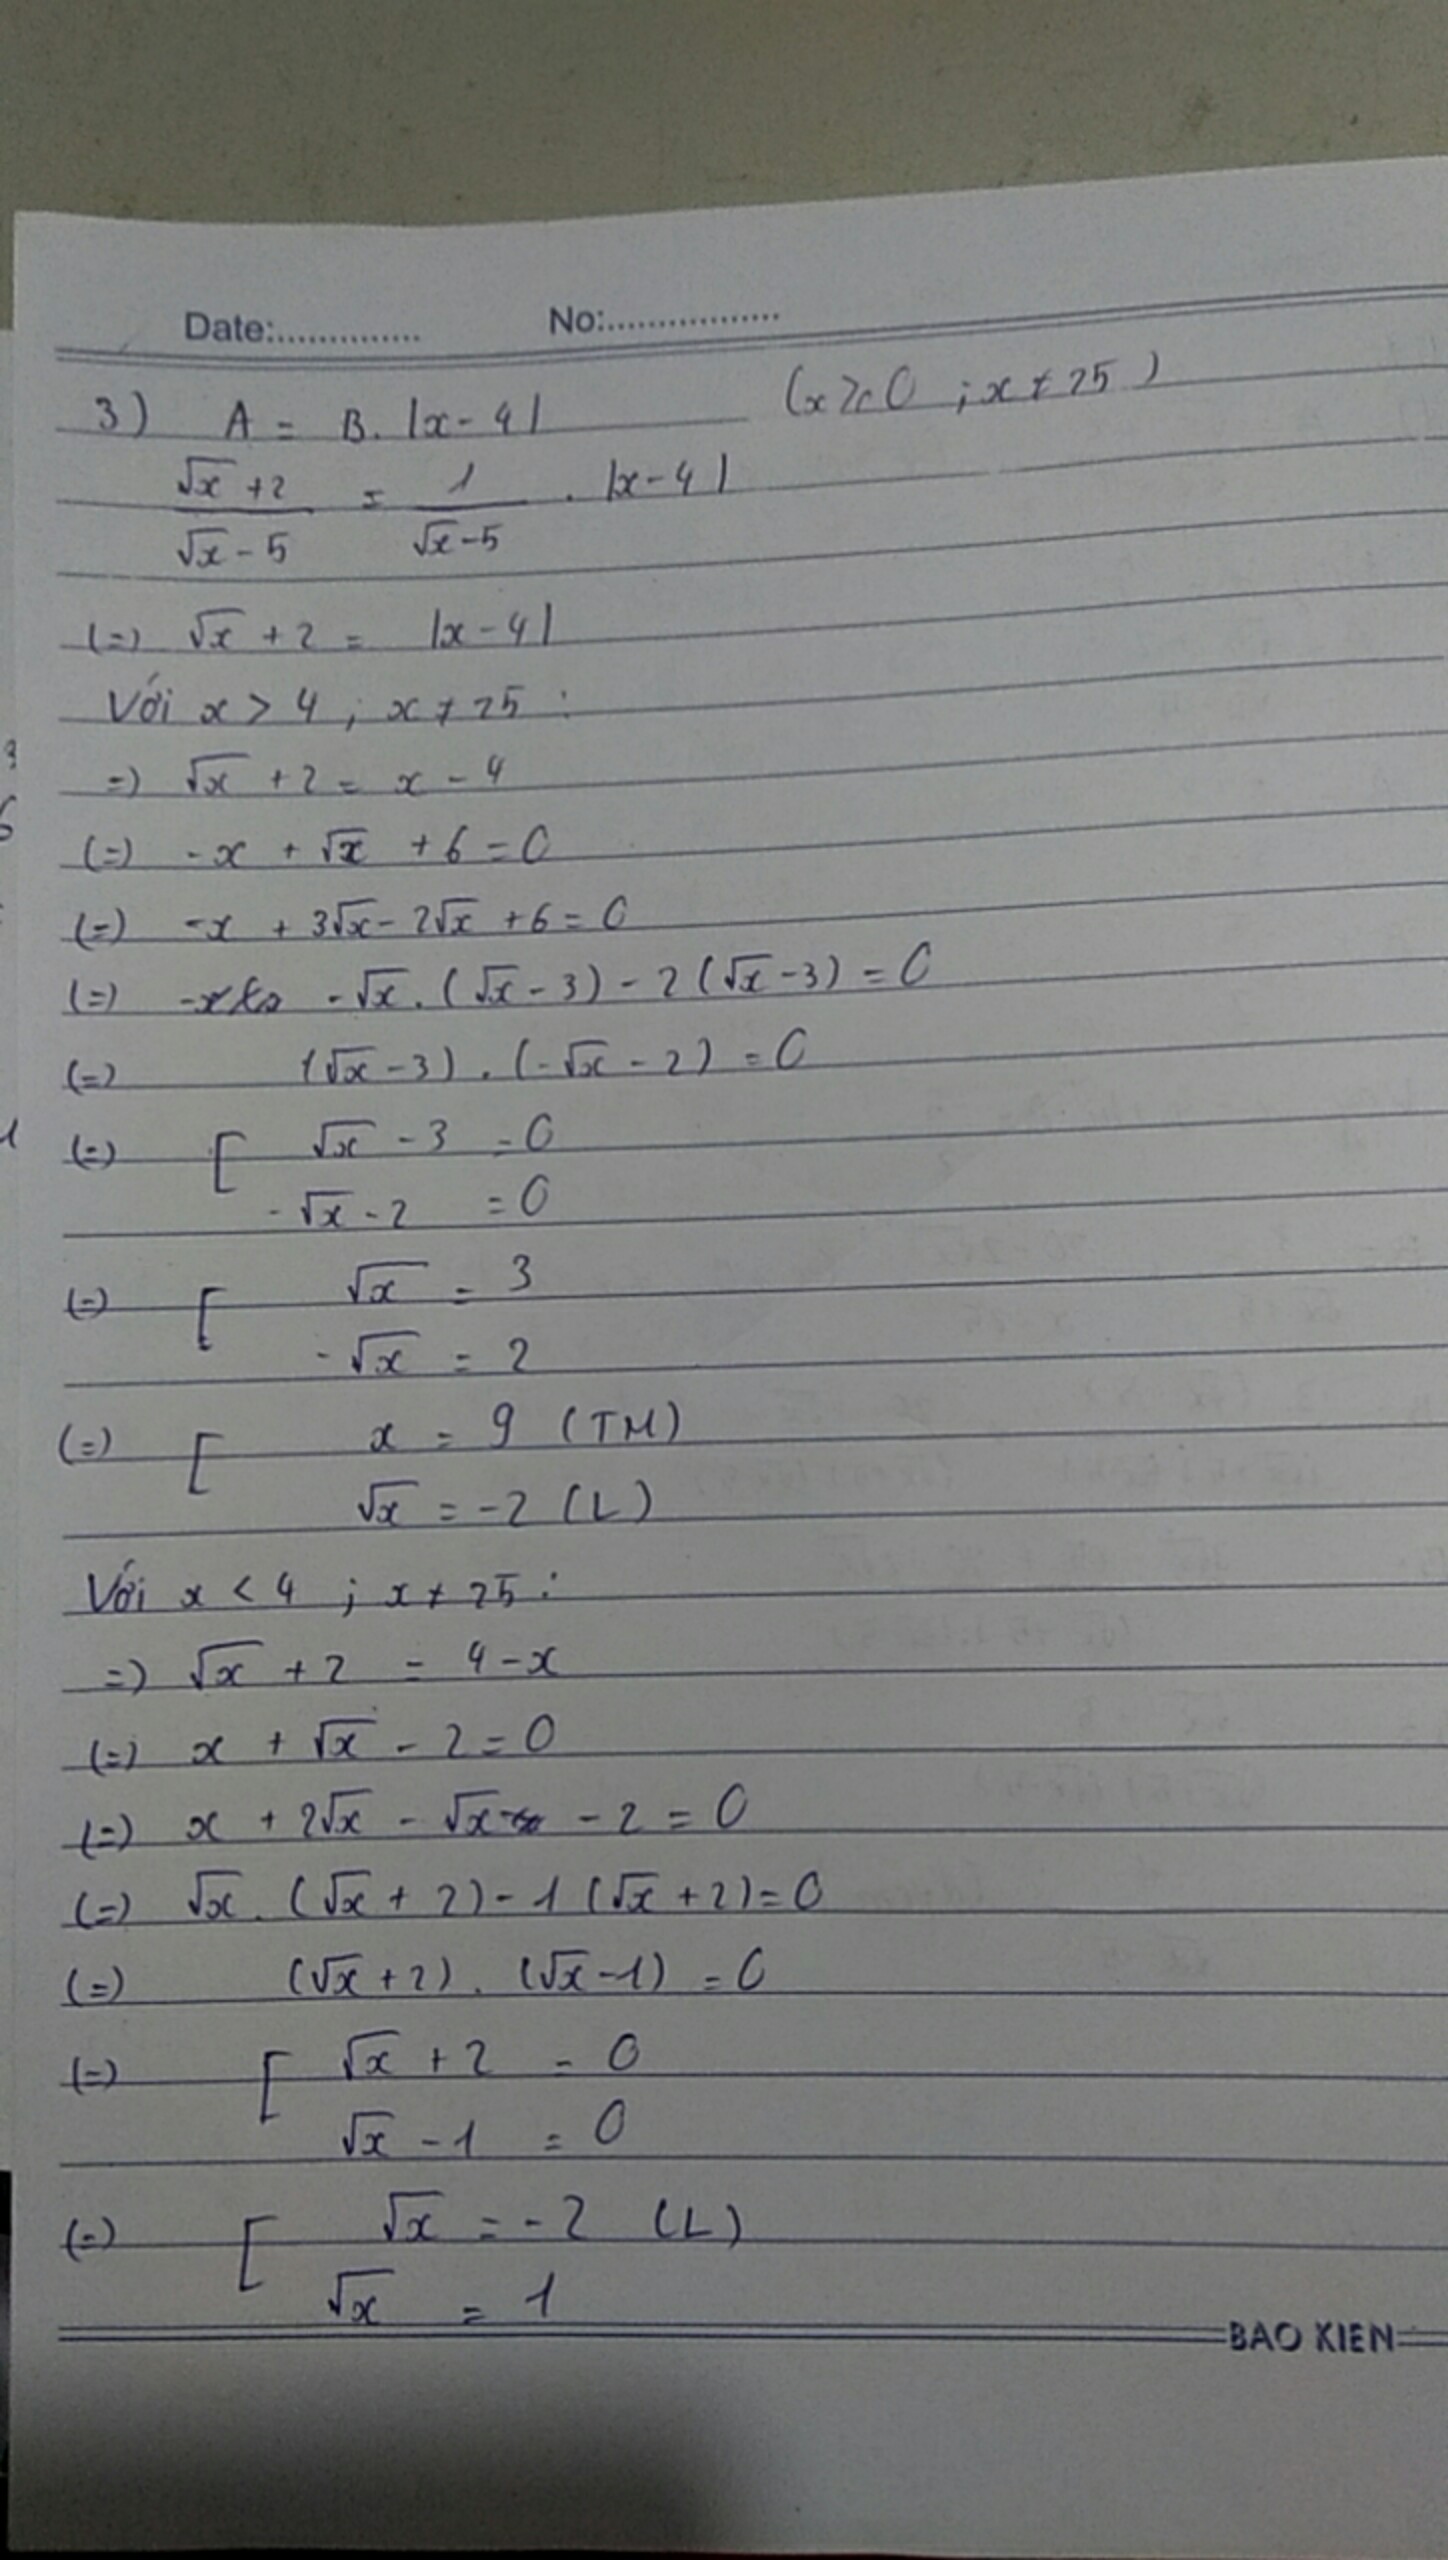 Date:............... No:.................
3) A = B. |x - 4| (x ≥ 0 ; x ≠ 25)
(√x + 2)/(√x - 5) = 1/(√x - 5) . |x - 4|
(=) √x + 2 = |x - 4|
Với x > 4 ; x ≠ 25 :
=) √x + 2 = x - 4
(=) -x + √x + 6 = 0
(=) -x + 3√x - 2√x + 6 = 0
(=) -√x . (√x - 3) - 2 (√x - 3) = 0
(=) (√x - 3) . (-√x - 2) = 0
(=) [ √x - 3 = 0
-√x - 2 = 0
(=) [ √x = 3
-√x = 2
(=) [ x = 9 (TM)
√x = -2 (L)
Với x < 4 ; x ≠ 25 :
=) √x + 2 = 4 - x
(=) x + √x - 2 = 0
(=) x + 2√x - √x - 2 = 0
(=) √x . (√x + 2) - 1 (√x + 2) = 0
(=) (√x + 2) . (√x - 1) = 0
(=) [ √x + 2 = 0
√x - 1 = 0
(=) [ √x = -2 (L)
√x = 1
BAO KIEN